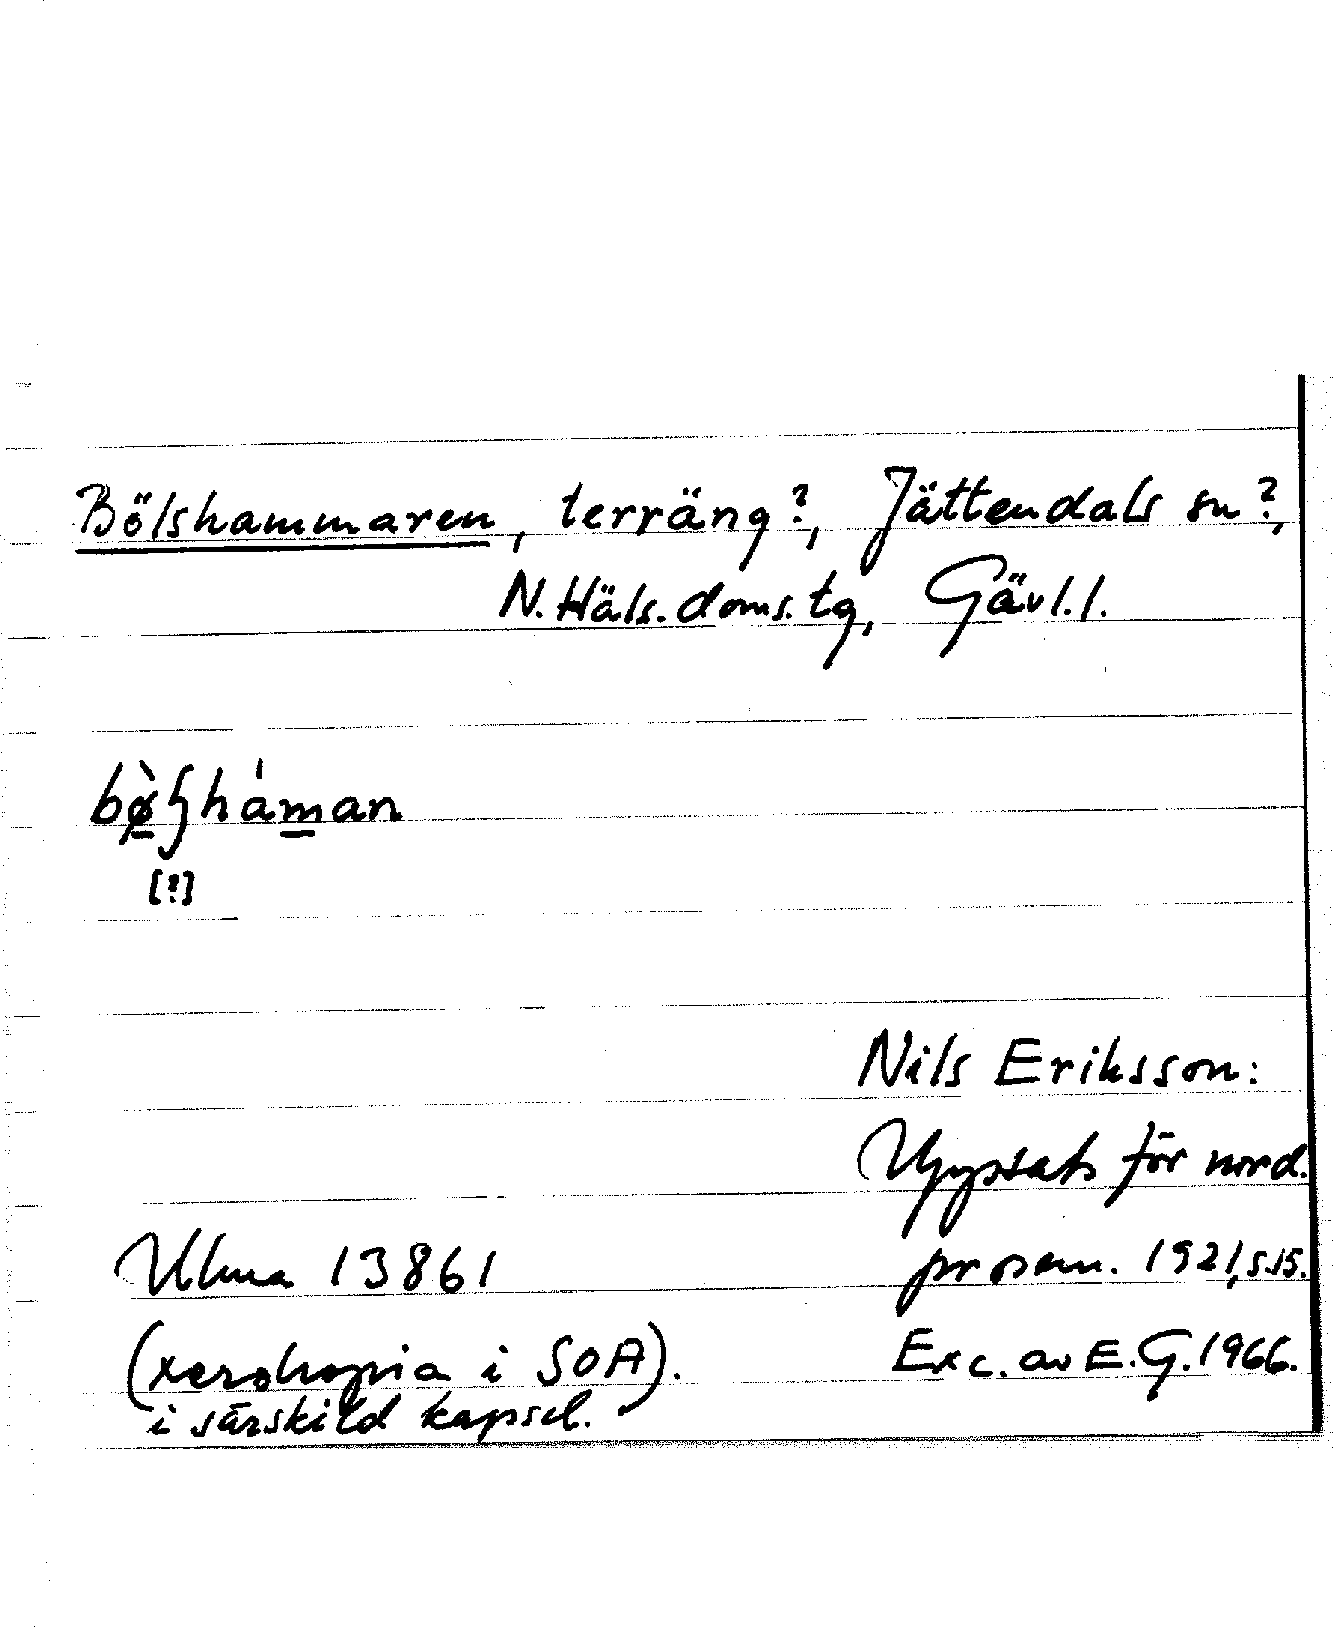 Bölshammaren, terräng?, Jättendals sn?,
N. Häls. doms. tg, Gävl. l.
[!]
Nils Eriksson:
Uppsats för nord.
prosem. 1921, s. 15.
Ulma 13861
Exc. av E. G. 1966.
(xerokopia i SOA).
i särskild kapsel.